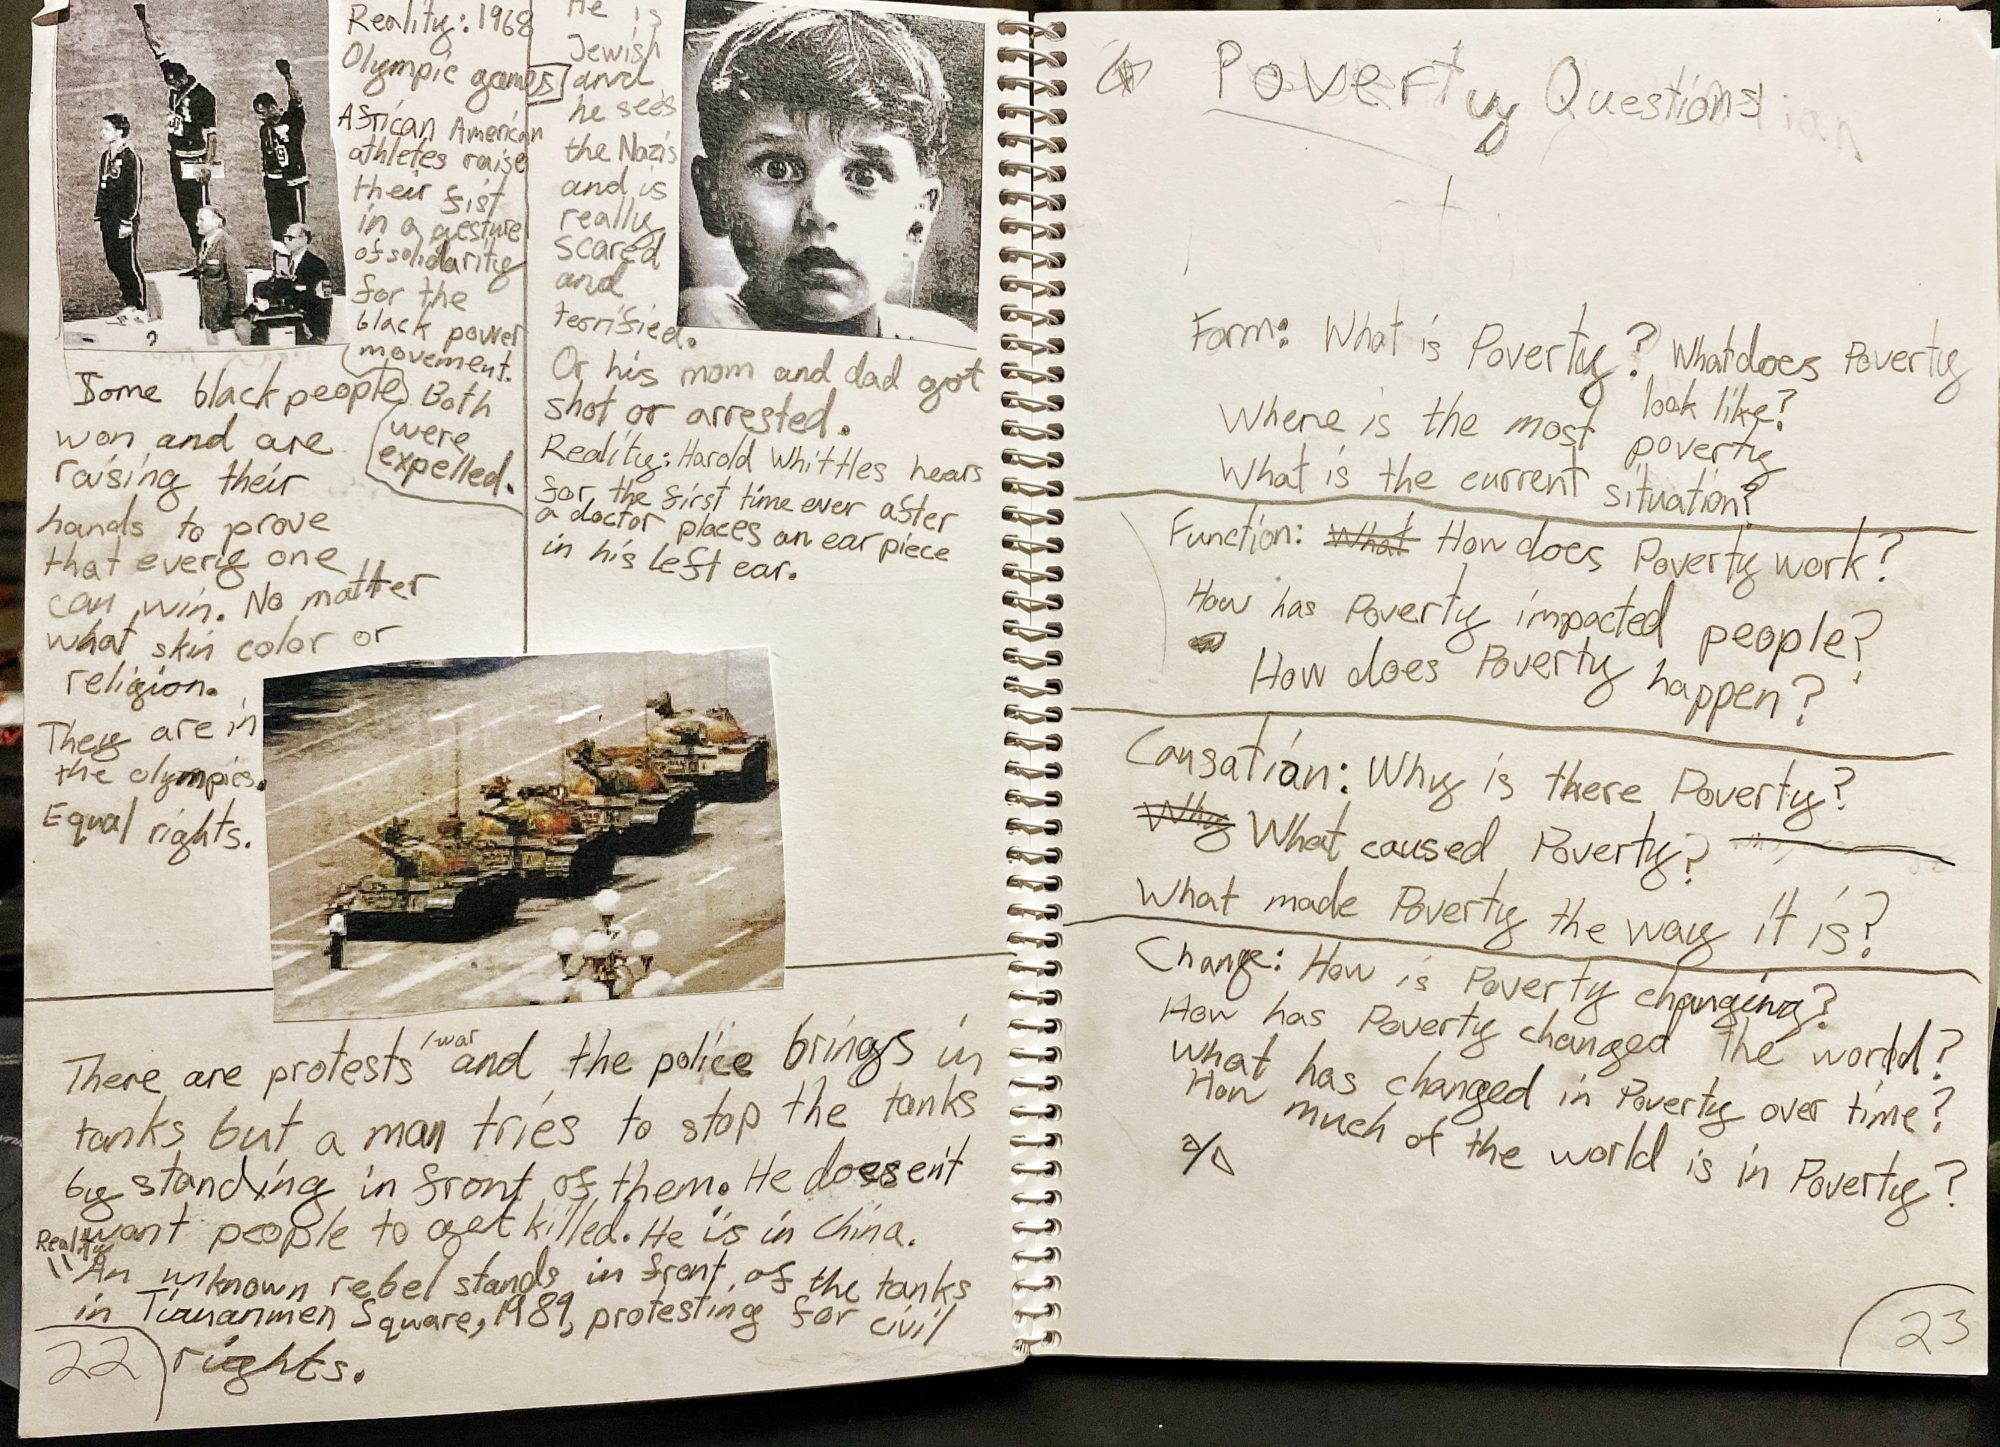 Reality: 1968
Olympic games
African American
athletes raise
their fist
in a gesture
of solidarity
for the
black power
movement.
Both
were
expelled.
Some black people
won and are
raising their
hands to prove
that every one
can win. No matter
what skin color or
religion.
They are in
the olympics.
Equal rights.
He is
Jewish
and
he sees
the Nazis
and is
really
scared
and
terrified.
Or his mom and dad got
shot or arrested.
Reality: Harold Whittles hears
for the first time ever after
a doctor places an ear piece
in his left ear.
There are protests /war and the police brings in
tanks but a man tries to stop the tanks
by standing in front of them. He doesen't
want people to get killed. He is in China.
Reality
An unknown rebel stands in front of the tanks
in Tiananmen Square, 1989, protesting for civil
rights.
22
Poverty Questions
Form: What is Poverty? What does Poverty
look like?
Where is the most poverty
What is the current situation?
Function: What How does Poverty work?
How has Poverty impacted people?
How does Poverty happen?
Causation: Why is there Poverty?
Why What caused Poverty?
What made Poverty the way it is?
Change: How is Poverty changing?
How has Poverty changed the world?
What has changed in Poverty over time?
How much of the world is in Poverty?
23